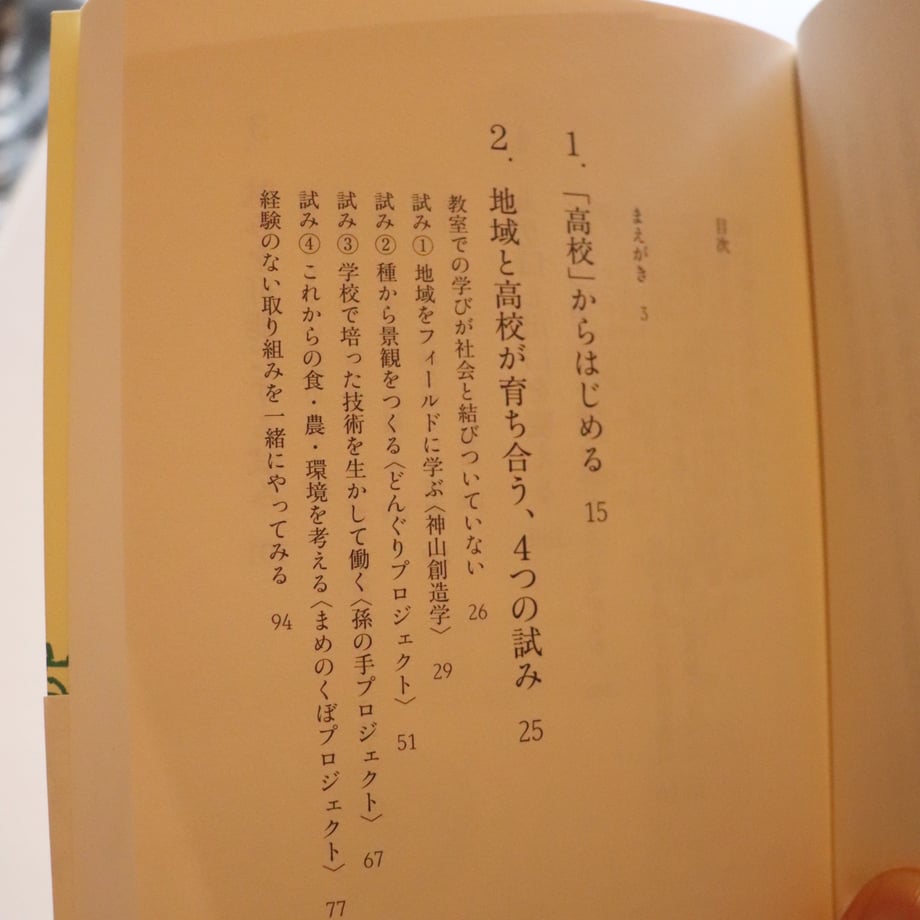 目次
まえがき 3
1. 「高校」からはじめる 15
2. 地域と高校が育ち合う、4つの試み 25
教室での学びが社会と結びついていない 26
試み① 地域をフィールドに学ぶ〈神山創造学〉 29
試み② 種から景観をつくる〈どんぐりプロジェクト〉 51
試み③ 学校で培った技術を生かして働く〈孫の手プロジェクト〉 67
試み④ これからの食・農・環境を考える〈まめのくぼプロジェクト〉 77
経験のない取り組みを一緒にやってみる 94